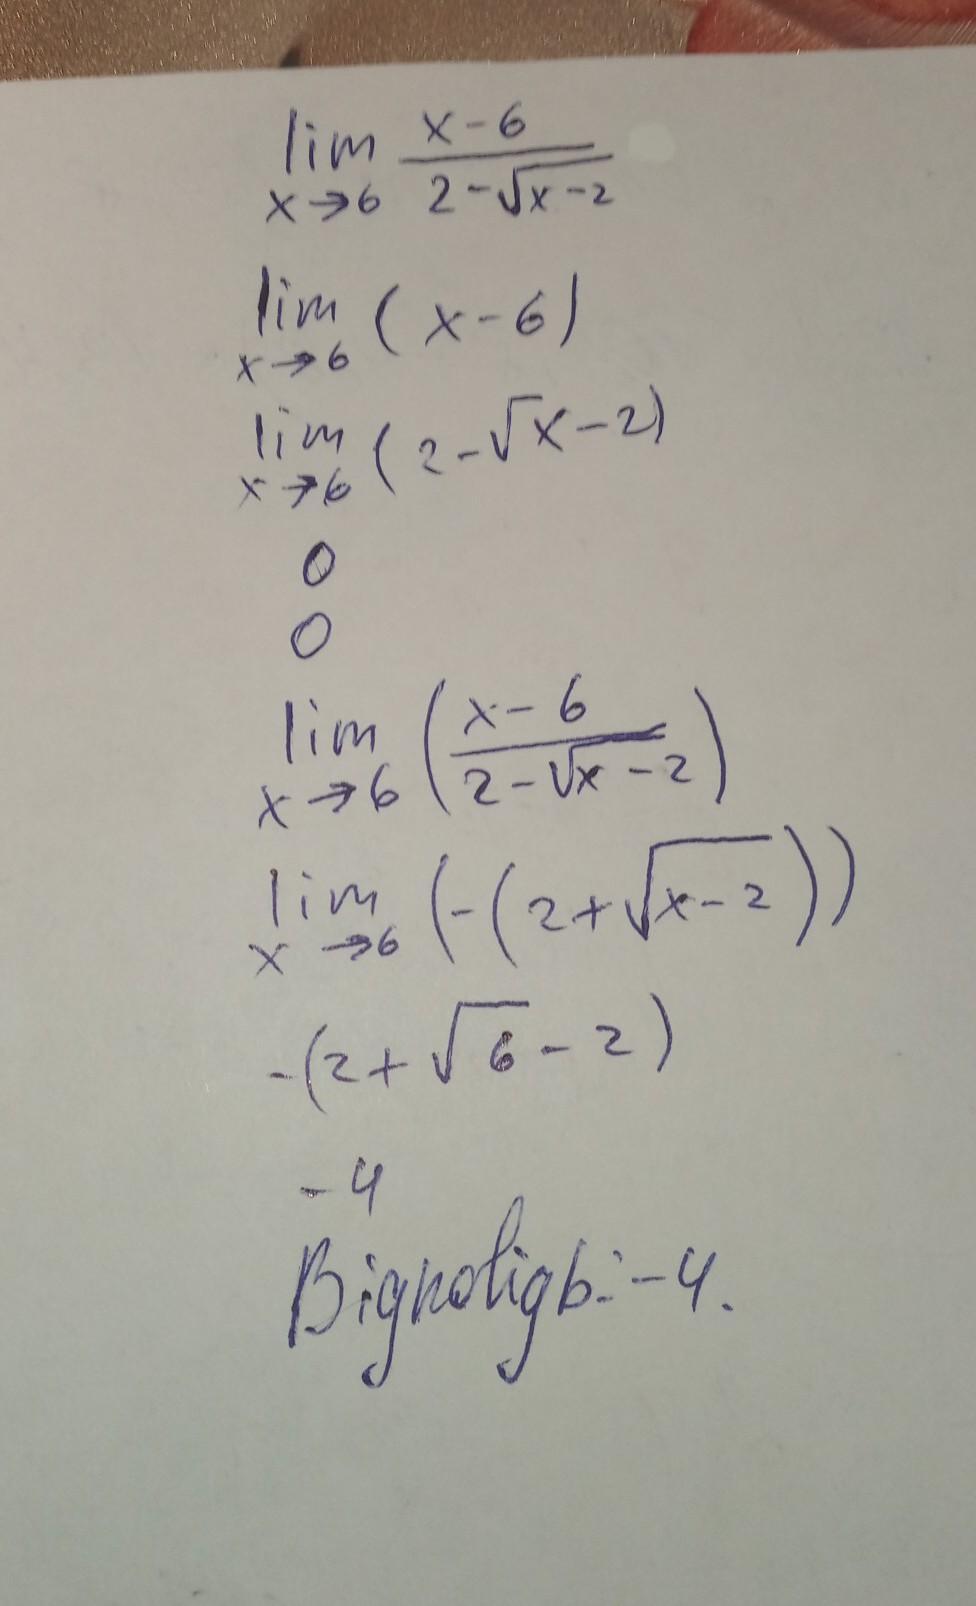 lim x-6
x→6 2-√x-2
lim (x-6)
x→6
lim (2-√x-2)
x→6
0
0
lim (x-6)
x→6 (2-√x-2)
lim (-(2+√x-2))
x→6
-(2+√6-2)
-4
Відповідь: -4.